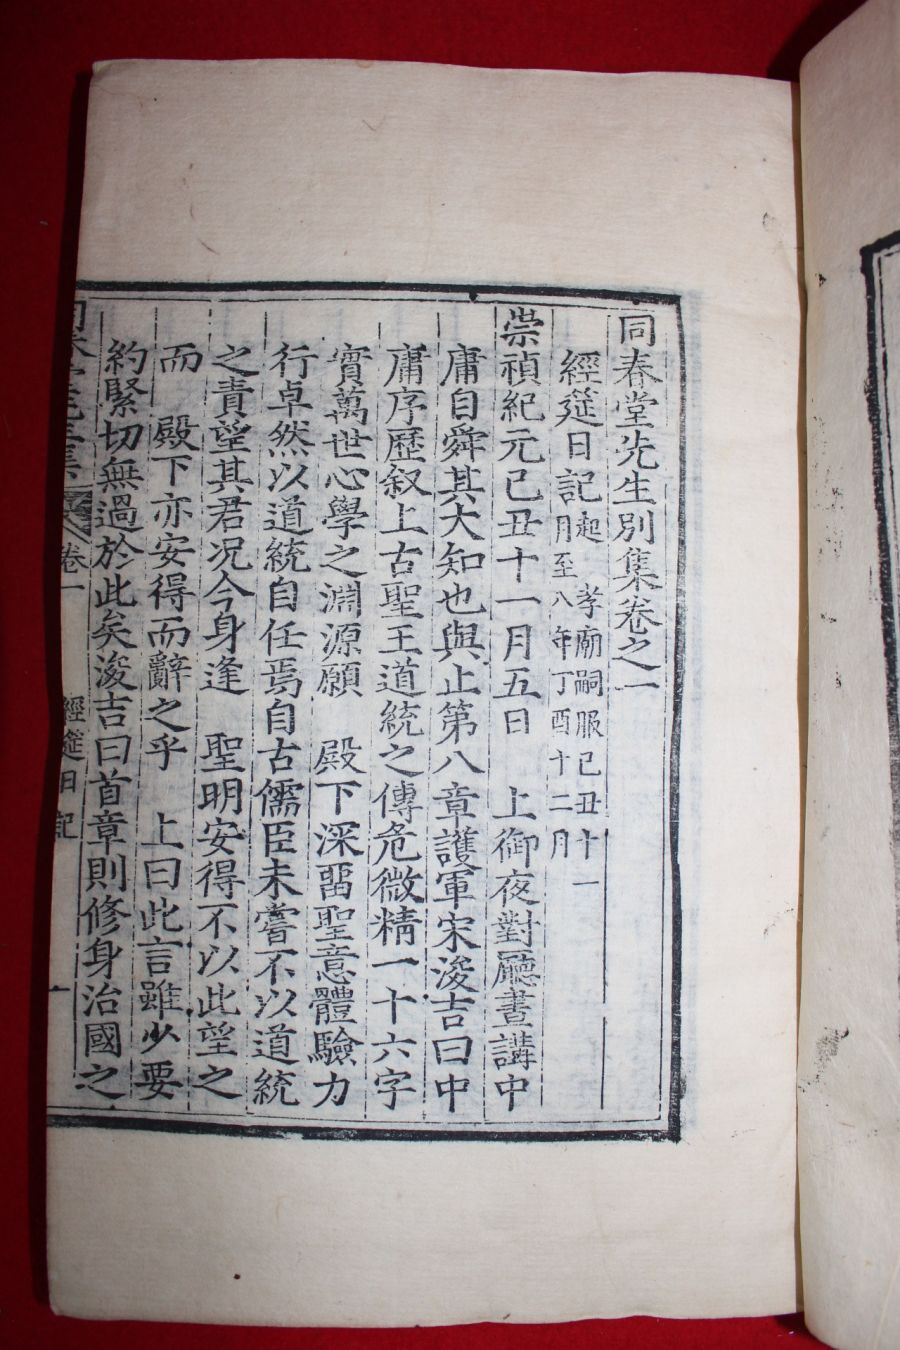 同春堂先生別集卷之一
經筵日記起 孝廟嗣服己丑十一月至八年丁酉十二月
崇禎紀元己丑十一月五日 上御夜對廳晝講中
庸自舜其大知也與止第八章護軍宋浚吉曰中
庸序歷叙上古聖王道統之傳危微精一十六字
實萬世心學之淵源願 殿下深留聖意體驗力
行卓然以道統自任焉自古儒臣未嘗不以道統
之責望其君况今身逢 聖明安得不以此望之
而 殿下亦安得而辭之乎 上曰此言雖少要
約緊切無過於此矣浚吉曰首章則修身治國之
卷一 經筵日記 一